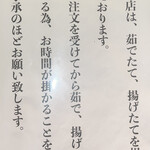 店は、茹でたて、揚げたてを
おります。
注文を受けてから茹で、揚げ
る為、お時間が掛かることを
承のほどお願い致します。